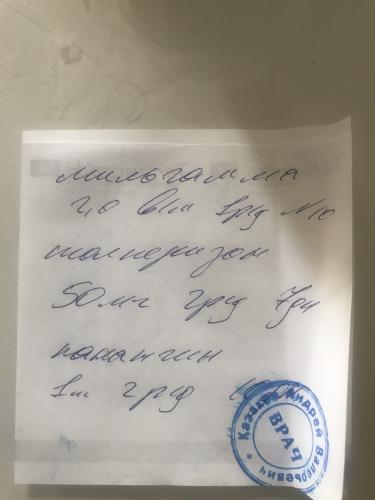 мильгамма
2,0 в/м 1р/д N10
толперизон
50мг 2р/д 7дн
панангин
1т 2р/д
Казаков Андрей Валерьевич
ВРАЧ